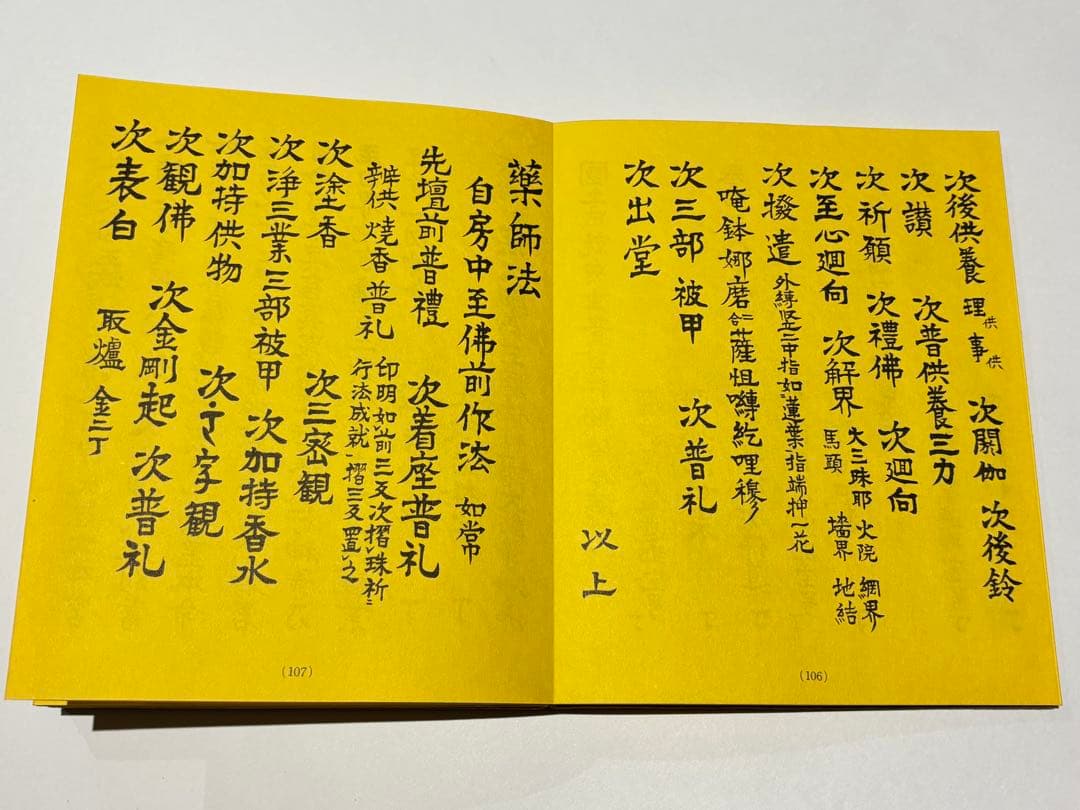 次後供養 理供 事供 次閼伽 次後鈴
次讃 次普供養三力
次祈願 次禮佛 次廻向
次至心廻向 次解界 大三昧耶 火院 網界
馬頭 墻界 地結
次撥遣 外縛竖二中指如蓮葉指端押一花
唵鉢娜磨合二薩怛嚩紇哩穆
次三部被甲 次普礼
次出堂 以上
(106)
藥師法
自房中至佛前作法 如常
先壇前普禮 次着座普礼
辨供 燒香 普礼 印明如前三反次摺珠祈ニ
行法成就一摺三反置之
次塗香 次三密観
次浄三業三部被甲 次加持香水
次加持供物 次字観
次観佛 次金剛起 次普礼
次表白 取爐 金二丁
(107)